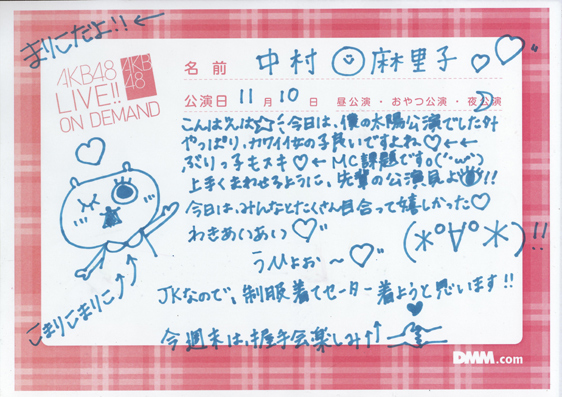 まりこだよ!!←
AKB48
LIVE!!
ON DEMAND
AKB
48
名前 中村 麻里子
公演日 11月10日 昼公演・おやつ公演・夜公演
こんばんは☆ 今日は、僕の太陽公演でしたが
やっぱり、カワイイ女の子良いですよね♡←←
ぶりっ子もスキ♡←MC課題ですo(^・ω・^)
上手くまわせるように、先輩の公演見よ!!
今日は、みんなとたくさん目合って嬉しかった♡
わきあいあい♡
(*°A°*)!!
うひょお〜♡
JKなので、制服着てセーター着ようと思います!!
こまりこまりこ↑↑
今週末は、握手会楽しみ↑↑
DMM.com